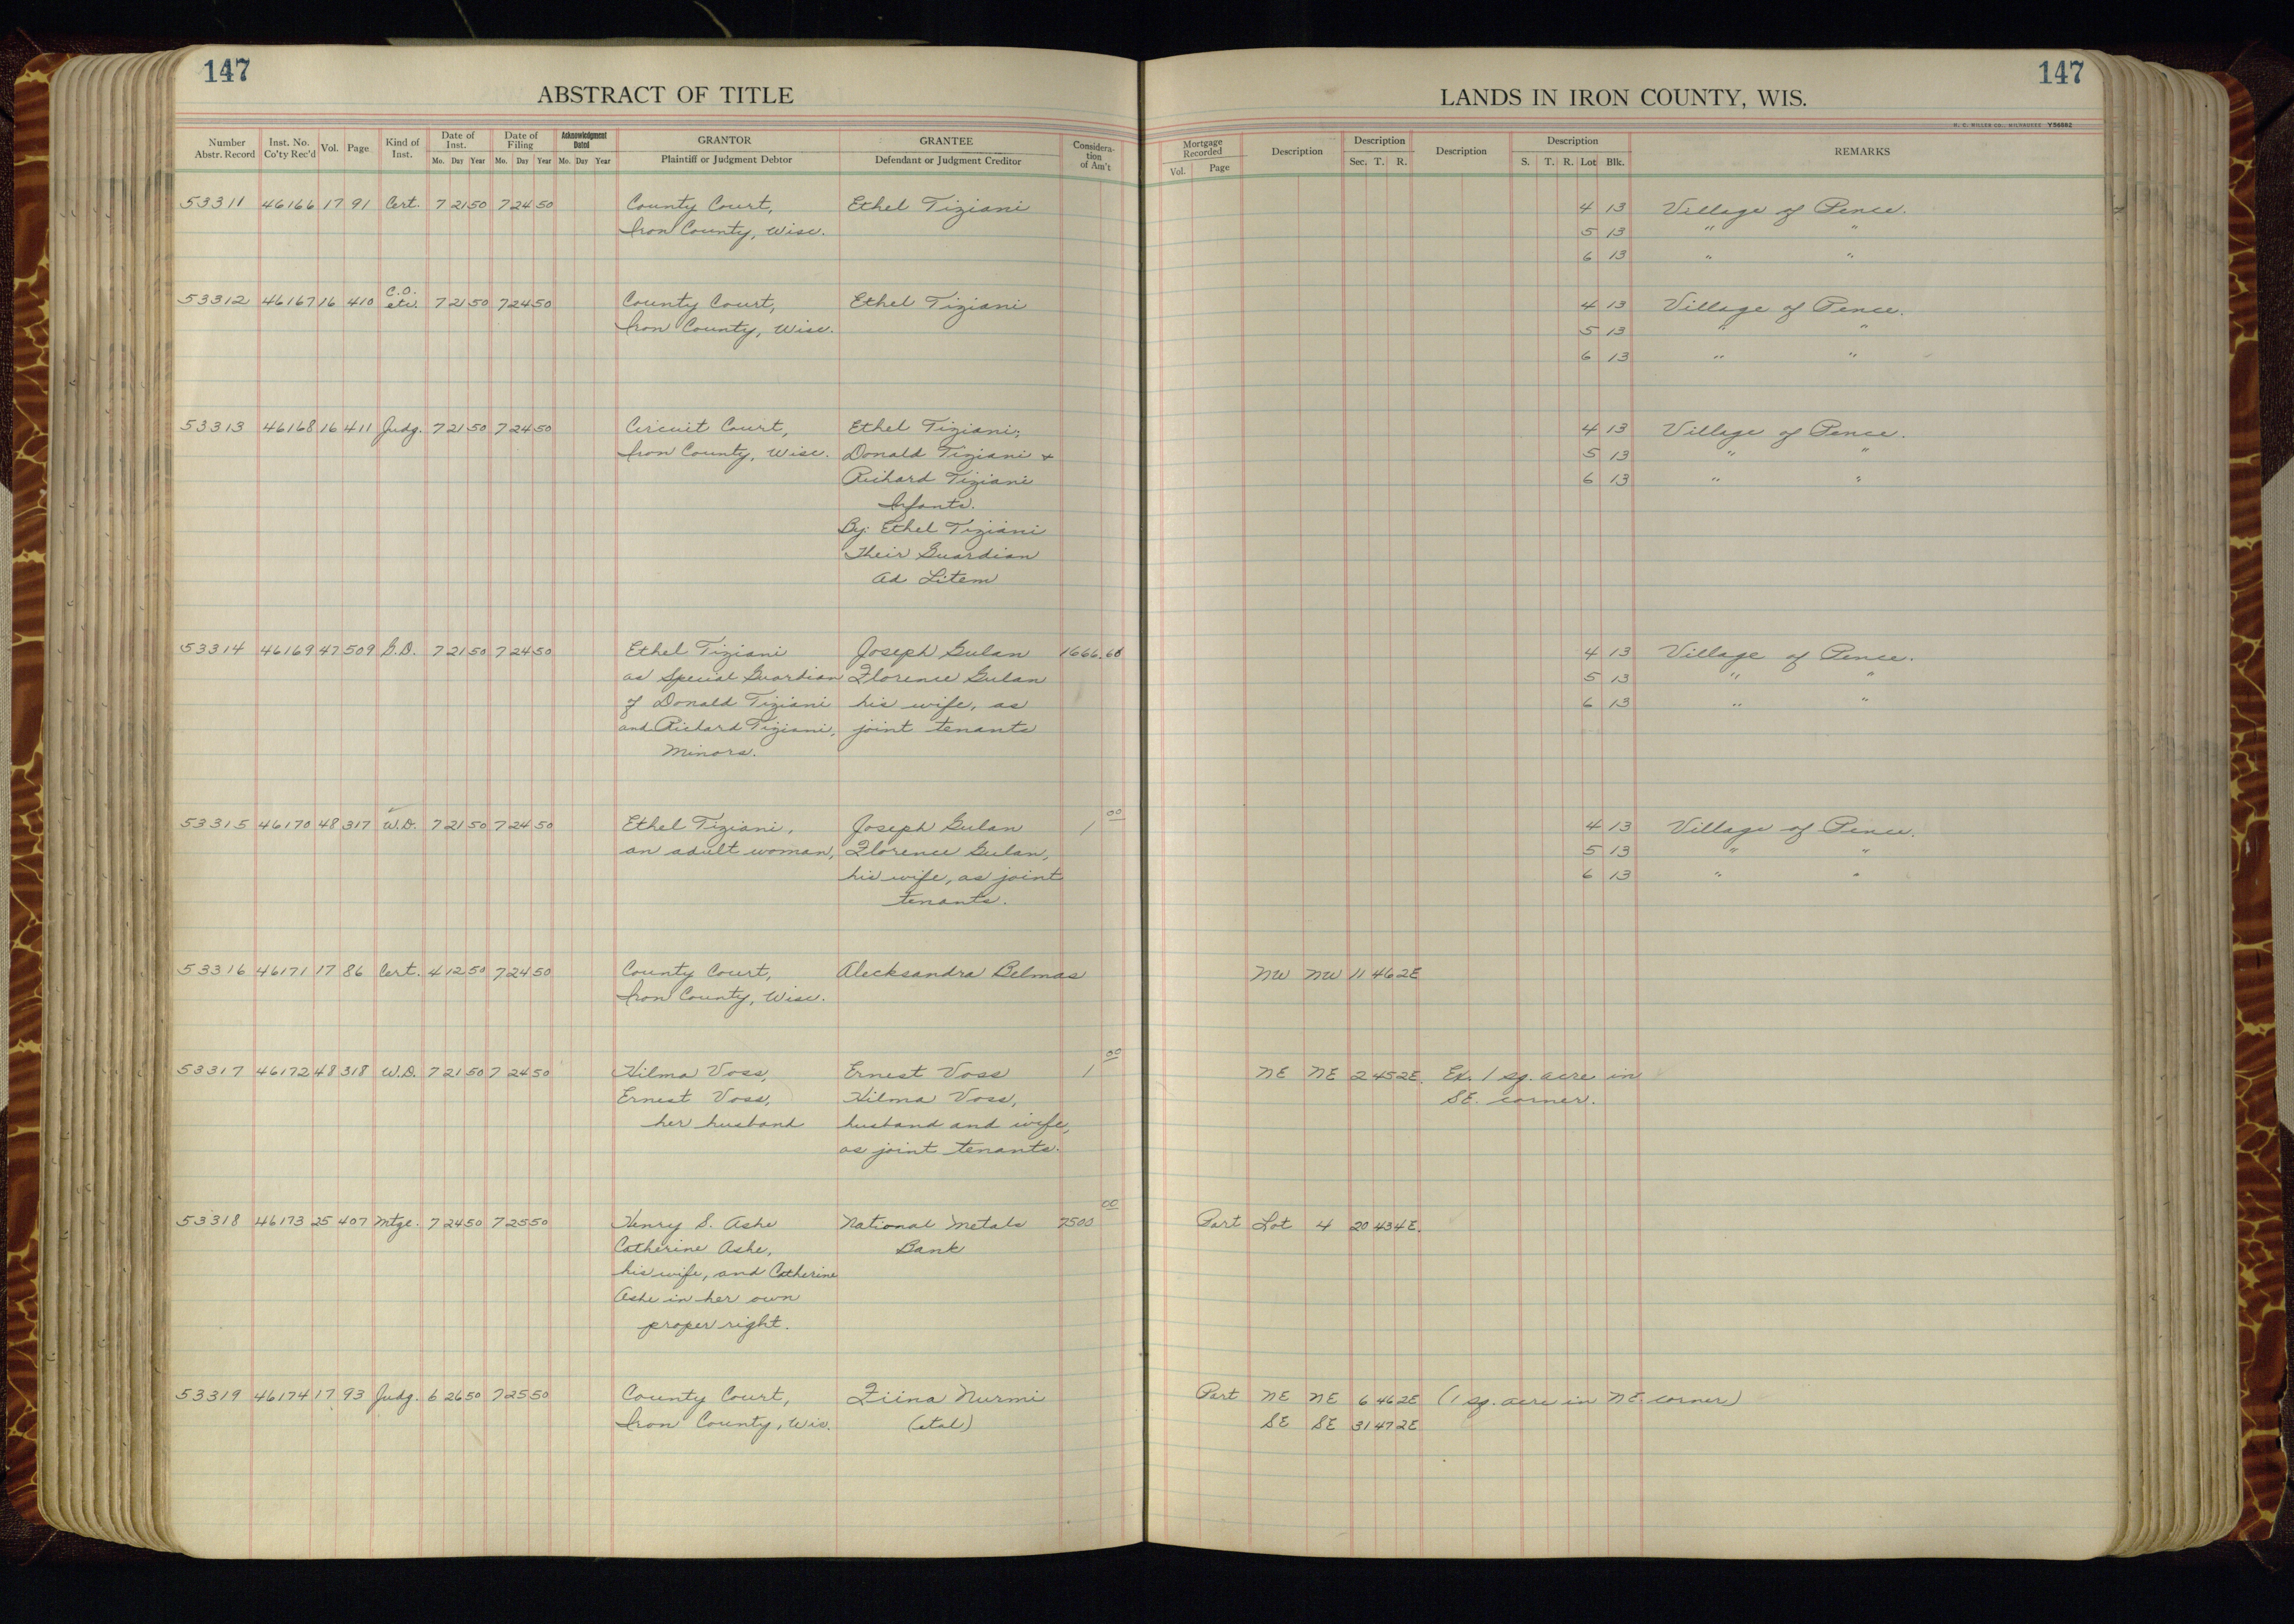 147
147
ABSTRACT OF TITLE
LANDS IN IRON COUNTY, WIS.
H. C. MILLER CO., MILWAUKEE Y56562
Number Abstr. Record Inst. No. Co'ty Rec'd Vol. Page Kind of Inst. Date of Inst. Mo. Day Year Date of Filing Mo. Day Year Acknowledgment Dated Mo. Day Year GRANTOR Plaintiff or Judgment Debtor GRANTEE Defendant or Judgment Creditor Considera- tion of Am't
Mortgage Recorded Vol. Page Description Description Sec. T. R. Description Description S. T. R. Lot Blk. REMARKS
53311 46166 17 91 Cert. 7 21 50 7 24 50 County Court, Ethel Tiziani 4 13 Village of Pence.
Iron County, Wisc. 5 13 " "
6 13 " "
C.O.
53312 46167 16 410 etc. 7 21 50 7 24 50 County Court, Ethel Tiziani 4 13 Village of Pence.
Iron County, Wisc. 5 13 " "
6 13 " "
53313 46168 16 411 Judg. 7 21 50 7 24 50 Circuit Court, Ethel Tiziani; 4 13 Village of Pence.
Iron County, Wisc. Donald Tiziani + 5 13 " "
Richard Tiziani 6 13 " "
Infants.
By: Ethel Tiziani
Their Guardian
Ad Litem
53314 46169 47 509 G.D. 7 21 50 7 24 50 Ethel Tiziani Joseph Gulan 1666.60 4 13 Village of Pence.
as Special Guardian Florence Gulan 5 13 " "
of Donald Tiziani his wife, as 6 13 " "
and Richard Tiziani, joint tenants
Minors.
53315 46170 48 317 W.D. 7 21 50 7 24 50 Ethel Tiziani, Joseph Gulan 1 00 4 13 Village of Pence.
an adult woman, Florence Gulan, 5 13 " "
his wife, as joint 6 13 " "
tenants.
53316 46171 17 86 Cert. 4 12 50 7 24 50 County Court, Alecksandra Belmas NW NW 11 46 2E
Iron County, Wisc.
53317 46172 48 318 W.D. 7 21 50 7 24 50 Hilma Voss, Ernest Voss 1 00 NE NE 2 45 2E. Ex. 1 sq. acre in
Ernest Voss, Hilma Voss, SE. corner.
her husband husband and wife,
as joint tenants.
53318 46173 25 407 Mtge. 7 24 50 7 25 50 Henry S. Ashe National Metals 7500 00 Part Lot 4 20 43 4E.
Catherine Ashe, Bank
his wife, and Catherine
Ashe in her own
proper right.
53319 46174 17 93 Judg. 6 26 50 7 25 50 County Court, Fiina Nurmi Part NE NE 6 46 2E (1 sq. acre in NE. corner)
Iron County, Wis. (etal) SE SE 31 47 2E